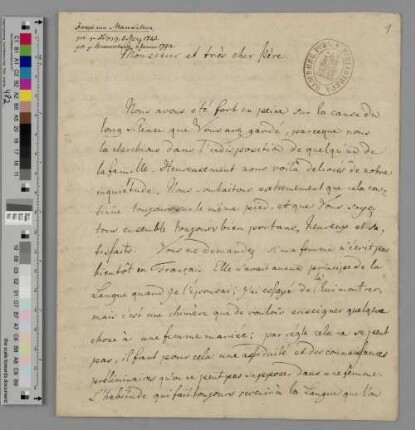 1
Monsieur et très cher Père.
Nous avons été fort en peine sur la cause du
long silence que Vous avez gardé, parceque nous
la cherchions dans l'indisposition de quelqu'un de
la famille. Heureusement nous voilà delivrés de notre
inquiétude. Nous souhaitons extremement que cela con-
tinue toujours sur le même pied, et que Vous soyez
tous ensemble toujours bien portans, heureux et sa-
tisfaits. Vous me demandez si ma femme n'écrit pas
bientôt en Français. Elle n'avait aucun principe de la
Langue quand je l'épousai; j'ai essayé de l'lui montrer,
mais c'est une chimère que de vouloir enseigner quelque
chose à une femme mariée; par règle cela ne se peut
pas, il faut pour cela une assiduité et des connaissances
préliminaires qu'on ne peut pas supposer dans une femme.
L'habitude qui fait toujours revenir à la Langue que l'on